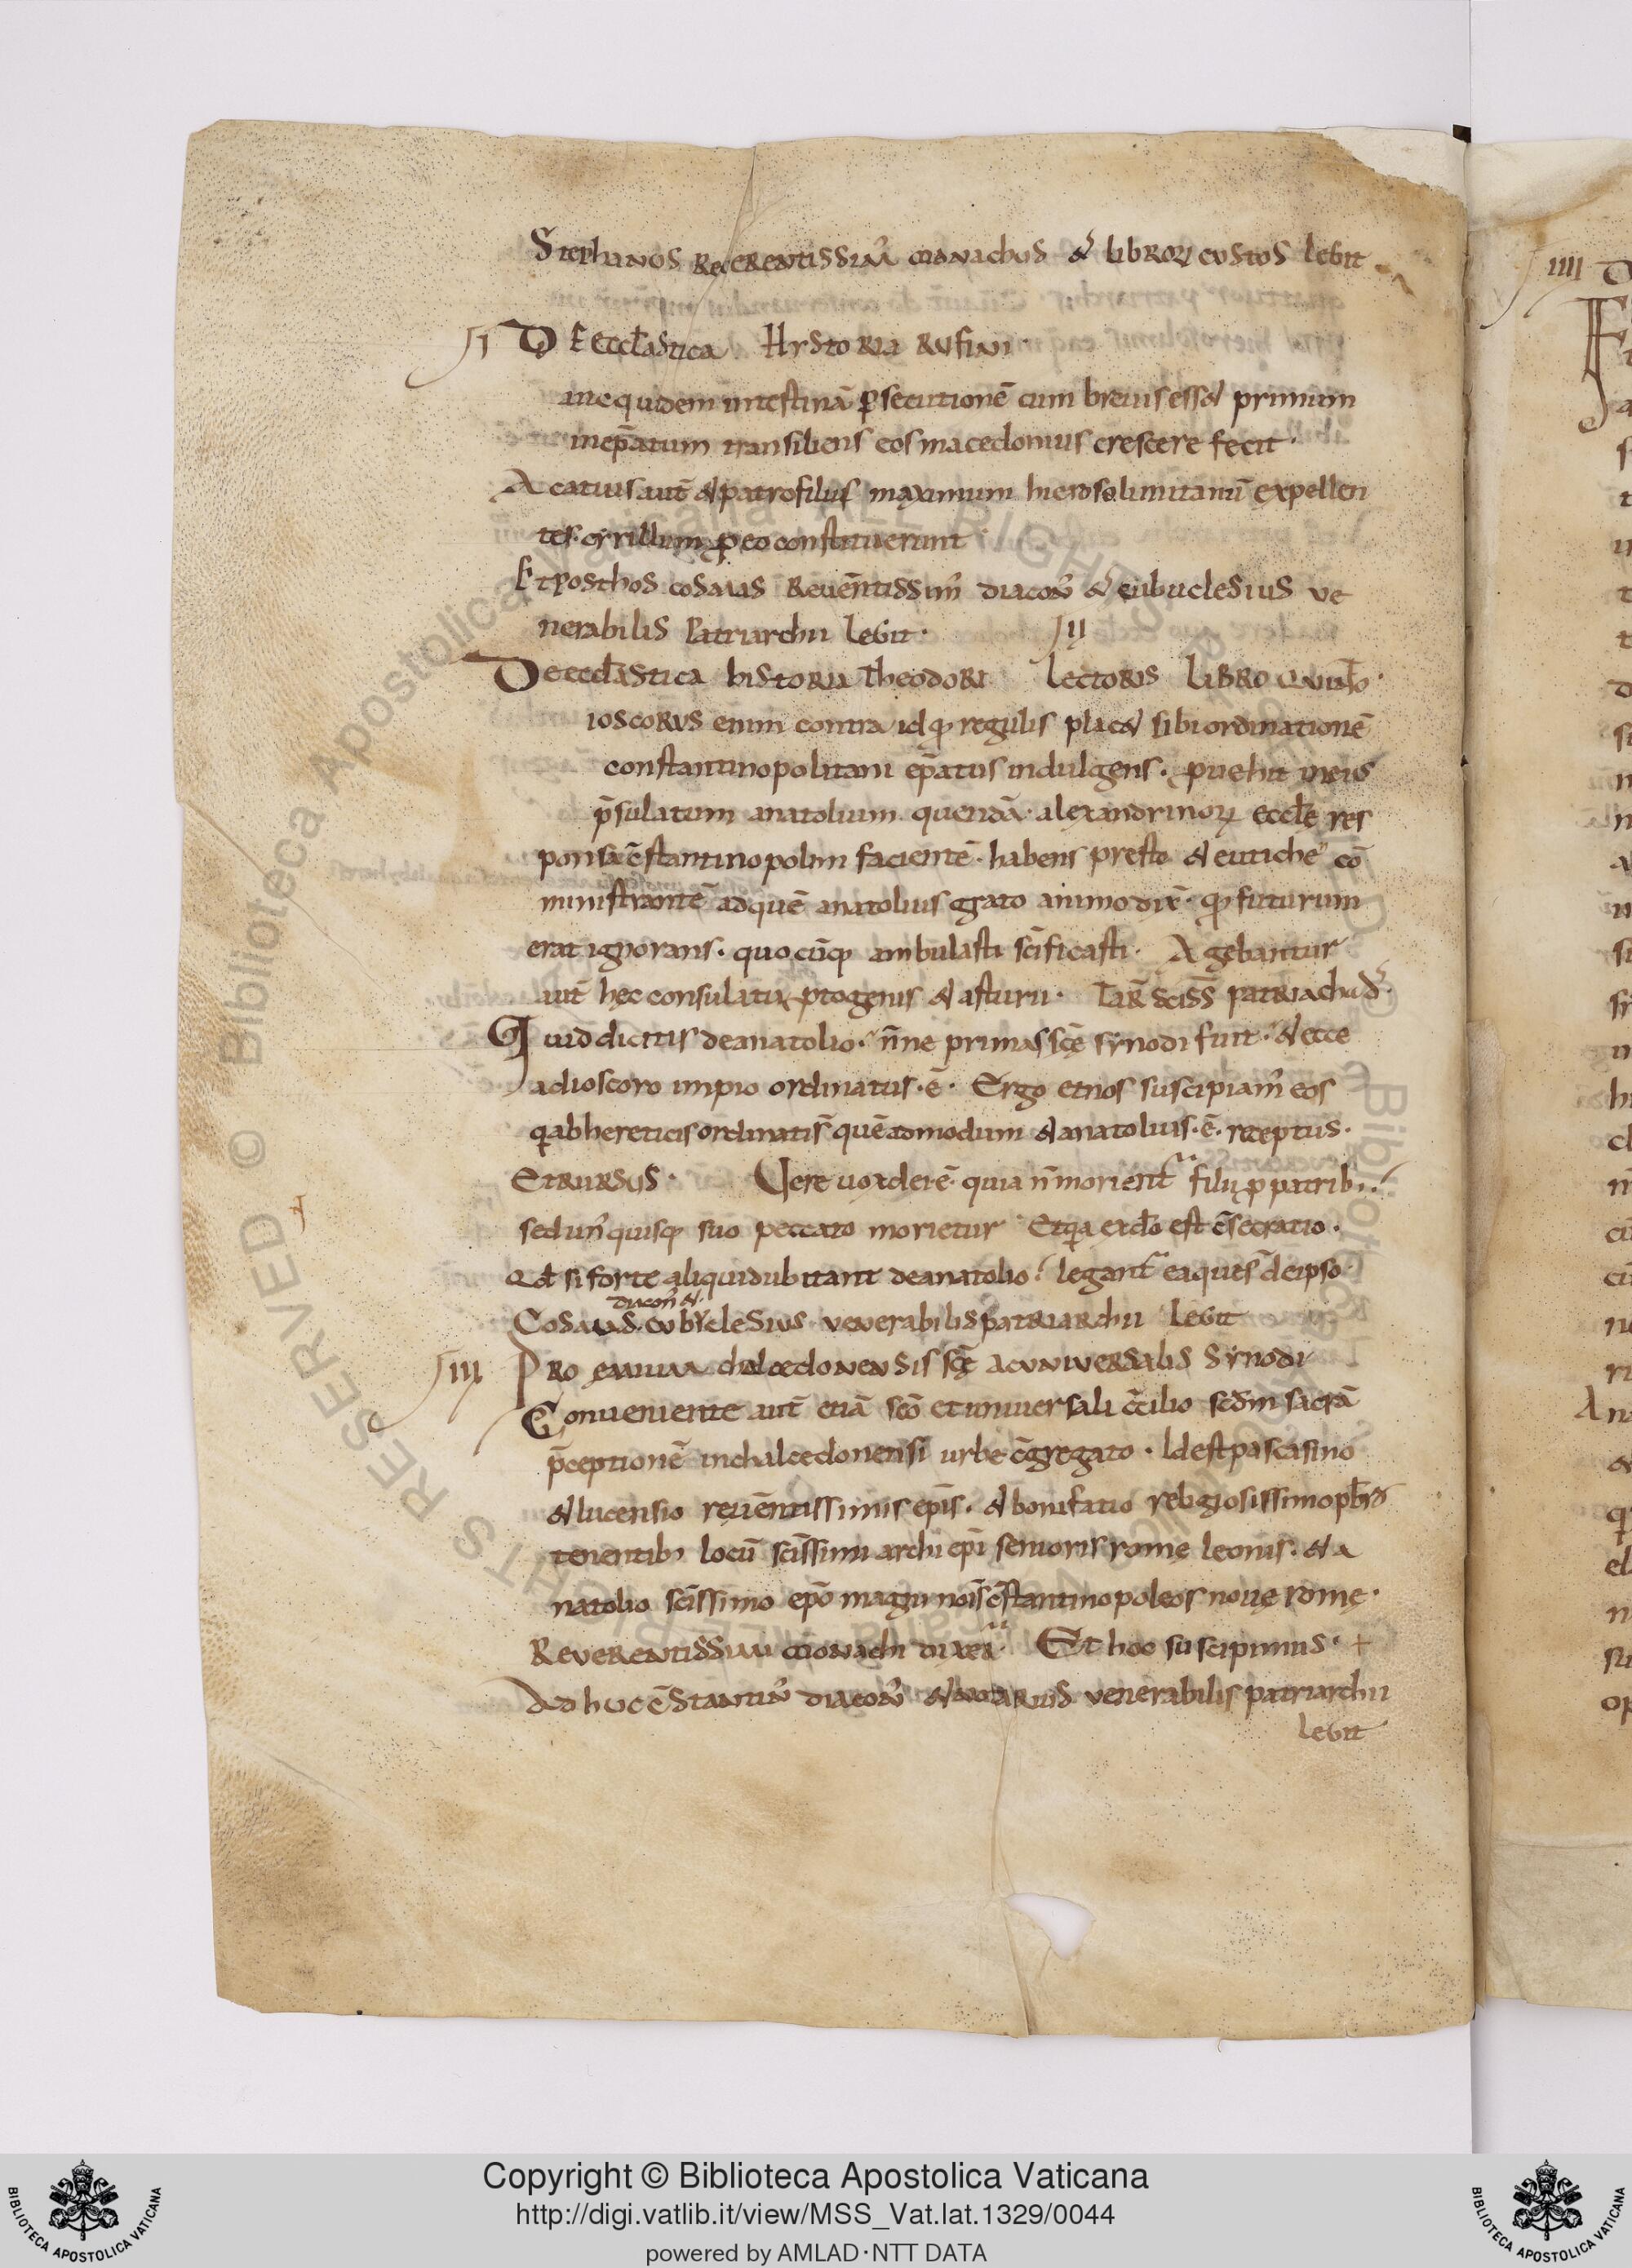 Stephanos Reuerentissim' monachus & libror custos legit
I DE Eccl'astica Hystoria Rufini
ine quidem intestinā p̱secutionē cum breuis ess& primum
inep̄atum transiliens eos macedonius crescere fecit.
Acatius aut̄ & patrofilus maximum hierosolimitanū expellen
tes. cyrillum p eo constituerunt
Et posthos cosmas Reuēntissim' diacon' & cubuclesius ve
nerabilis Patriarchii legit. II
De eccl'astica historia Theodori Lectoris Libro
ioscorus enim contra id q regulis plac& sibi ordinationē
constantinopolitani ep̄atus indulgens.
p̄sulatum anatolium quendā. alexandrinor eccl'e res
ponsa c̄stantinopolim facientē. habens presto & eutichē cō
ministrantē adquē anatolius grato animo dix̄. q futurum
erat ignorans. quocūq ambulasti sc̄ificasti. Agebantur
aut̄ hec consulatu ptogenis & asturii. Tar̄ sciss̄ patriachus.
Quid dicitis deanatolio. n̄ne primas sc̄e synodi fuit. & ecce
adioscoro impio ordinatus. ē. Ergo etnos suscipiam' eos
q ab hereticis ordinatis quēadmodum & anatolius. ē. receptus.
Et rursus. Uere uox dei ē. quia n̄ morient filii p patrib;.
sed un'quisq suo peccato morietur Et qa exdo est c̄secratio.
Qd si forte aliqui dubitant deanatolio. legant eaques̄ deipso.
diacon' &
Cosmas. cubuclesius venerabilis patriarchii legit
III Pro emium chalcedonensis sc̄e ac universalis Synodi
Conueniente aut̄ etiā sc̄o et uniuersali c̄cilio scdm sacrā
p̄ceptionē inchalcedonensi urbe c̄gregato. Idest pascasino
& lucensio reuēntissimis ep̄is. & bonifatio religiosissimo pbro
tenentib; locū sc̄issimi archi ep̄i senioris rome leonis. & a
natolio sc̄issimo ep̄o magn nois c̄stantinopoleos noue rome.
Reverentissimi monachi dixer. Et hoc suscipimus. +
Ad huc c̄stantin' diacon' & notarius venerabilis patriarchii
legit
IIII
Copyright © Biblioteca Apostolica Vaticana
http://digi.vatlib.it/view/MSS_Vat.lat.1329/0044
powered by AMLAD·NTT DATA
BIBLIOTECA APOSTOLICA VATICANA
BIBLIOTECA APOSTOLICA VATICANA